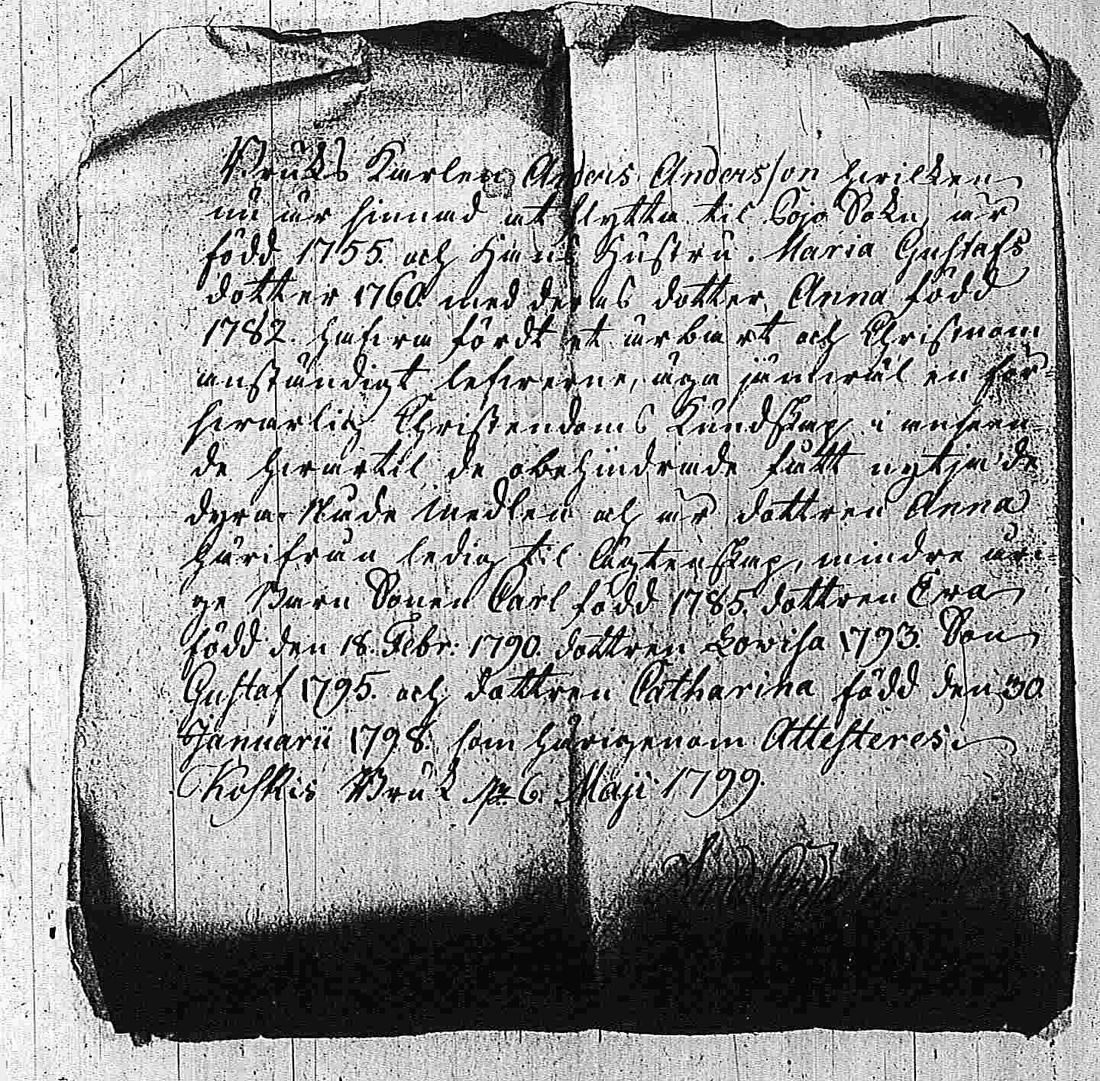 Bruks Karlen Anders Andersson hvilken
nu är sinnad at flytta til Lojo Sokn, är
född 1755. och Hans Hustru. Maria Gustafs
dotter 1760. med deras dotter Anna född
1782. hafva fördt et ärbart och Christnom
anständigt lefverne, äga jämväl en för=
svarlig Christendoms Kundskap i anseen=
de hvartil de obehindrade fått nytja de
dyra Nåde Medlen och är dottren Anna
härifrån ledig til Ägtenskap, mindre äri=
ge Barn Sonen Carl född 1785. dottren Eva
född den 18. Febr: 1790. dottren Lovisa 1793. Son
Gustaf 1795. och dottren Catharina född den 30
Januarii 1798. som härigenom Attesteres.
Koskis Bruk 6. Maji 1799.